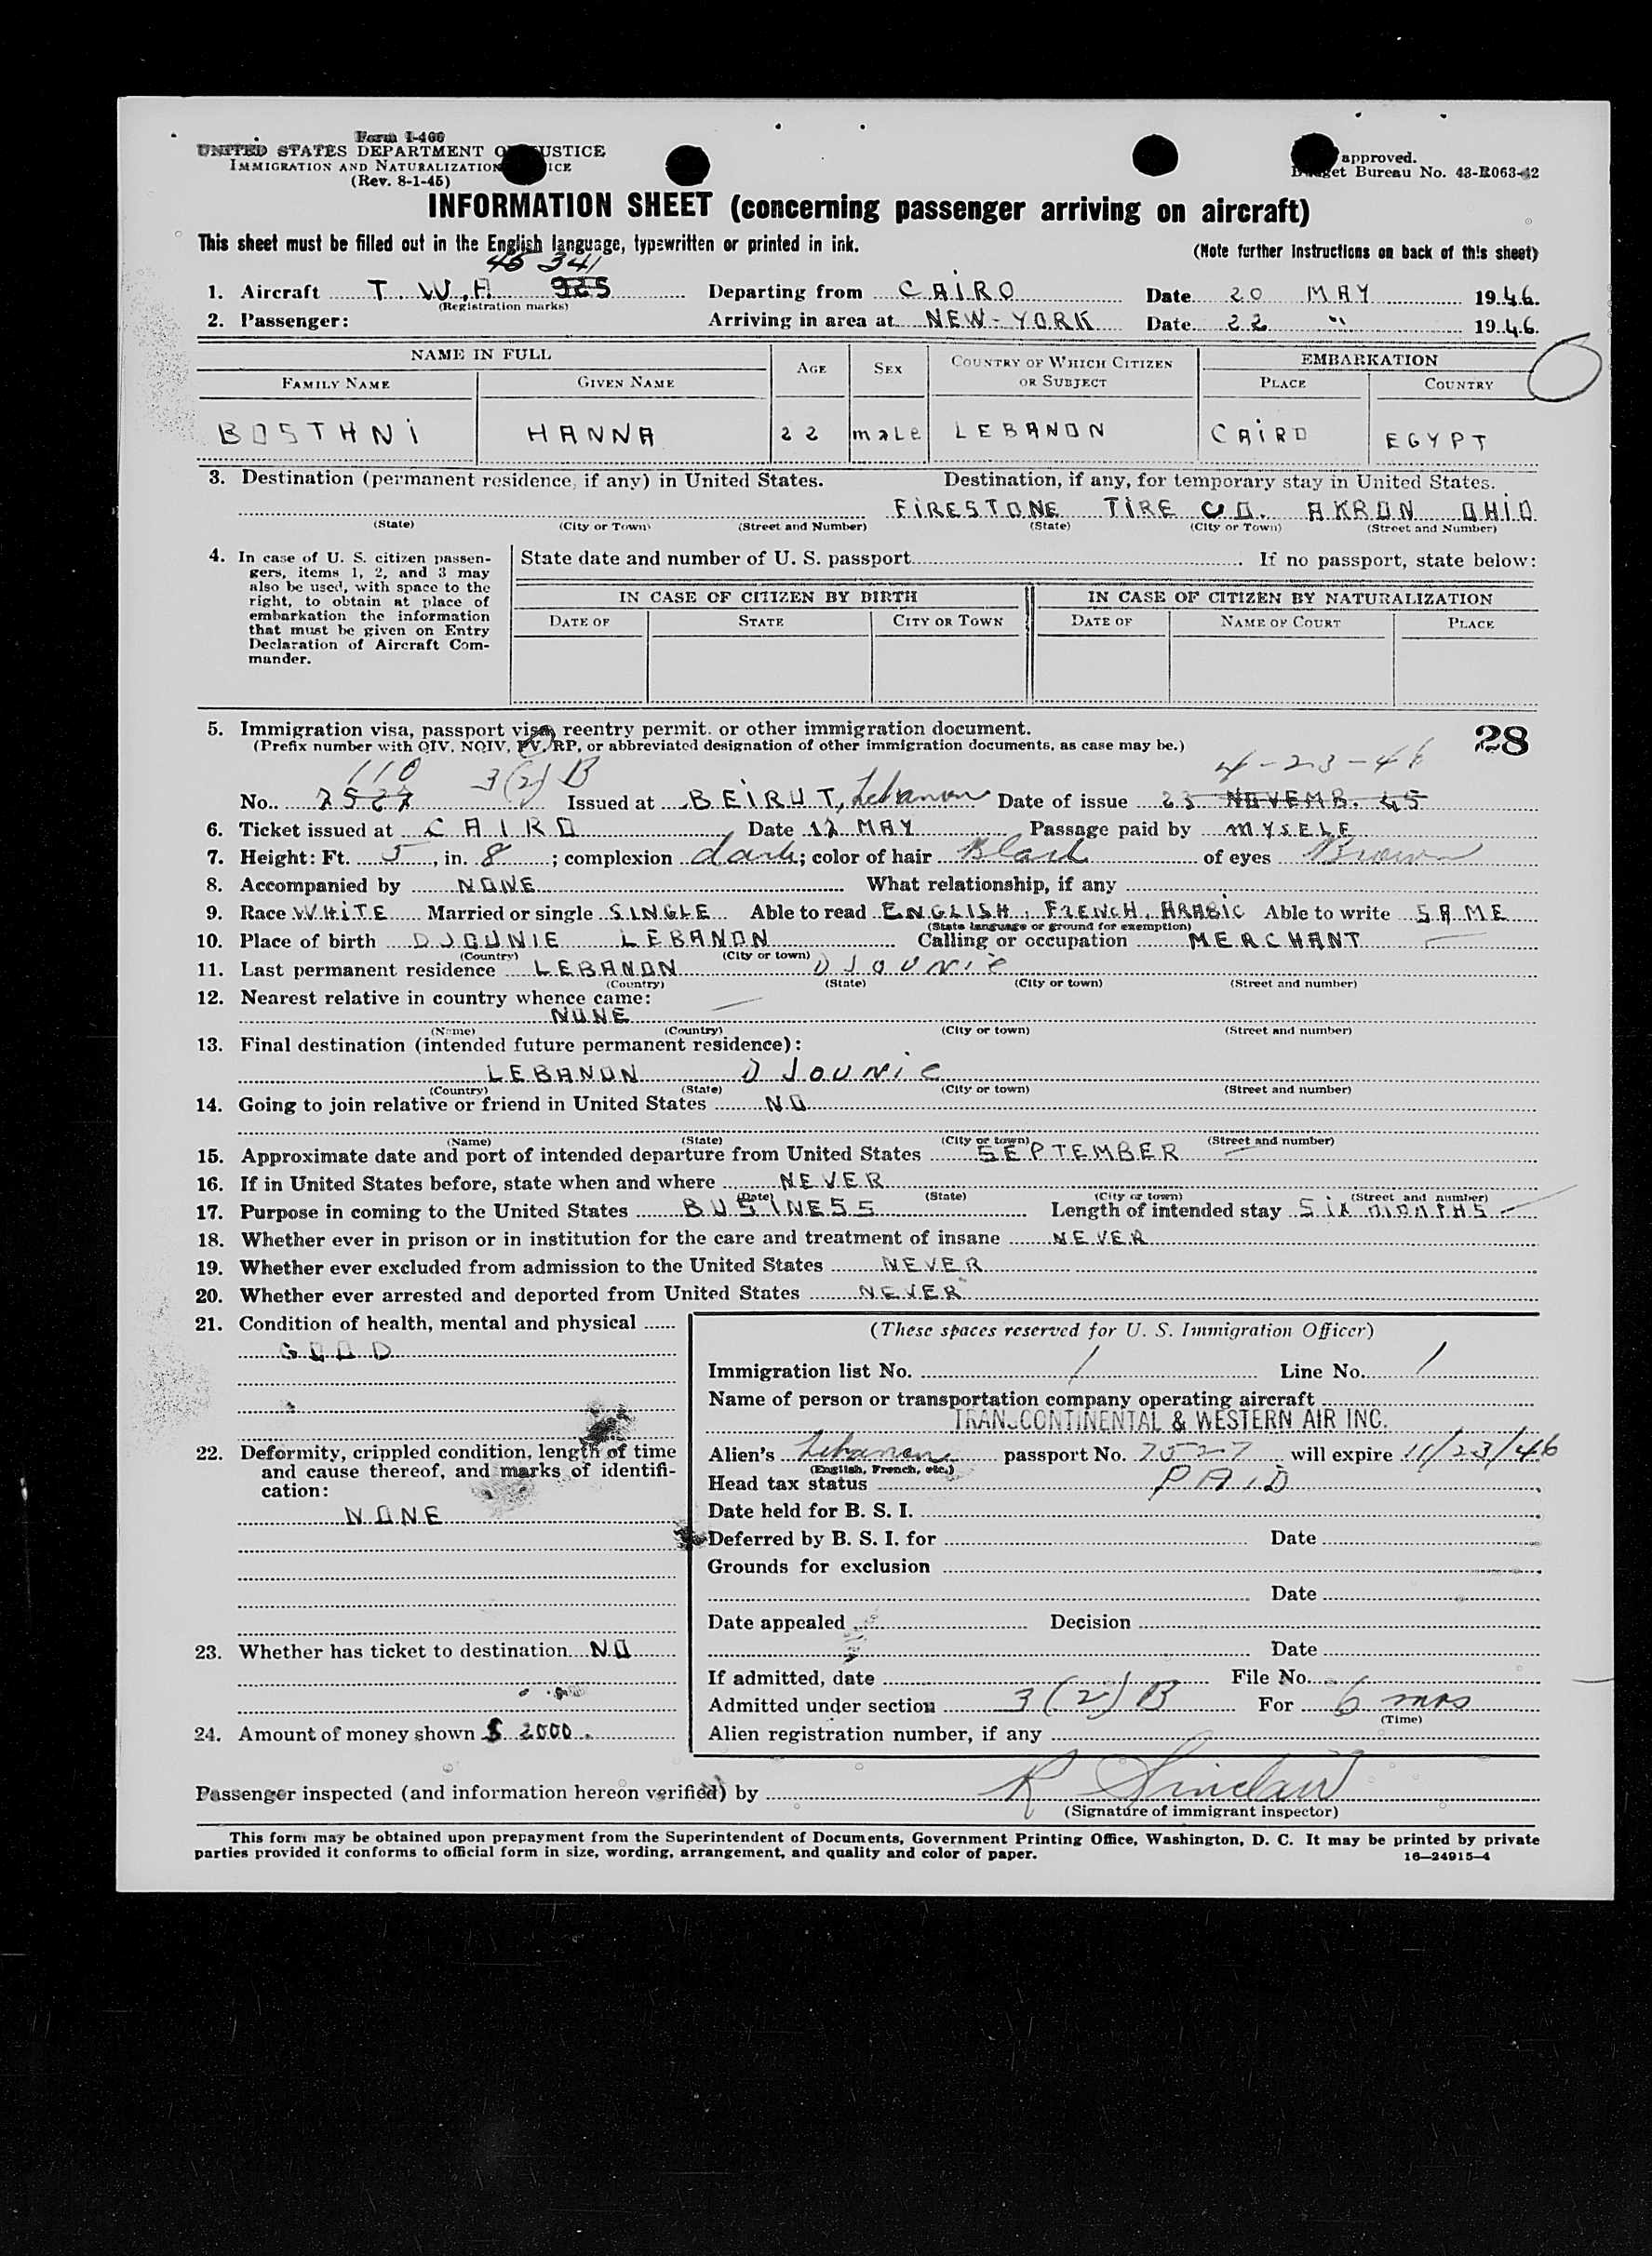 Form I-466
UNITED STATES DEPARTMENT OF JUSTICE
IMMIGRATION AND NATURALIZATION SERVICE
(Rev. 8-1-45)
approved.
Budget Bureau No. 43-R063-42
INFORMATION SHEET (concerning passenger arriving on aircraft)
This sheet must be filled out in the English language, typewritten or printed in ink.
(Note further instructions on back of this sheet)
45 341
1. Aircraft T.W.A 925 Departing from CAIRO Date 20 MAY 1946.
(Registration marks)
2. Passenger: Arriving in area at NEW-YORK Date 22 " 1946.
NAME IN FULL AGE SEX COUNTRY OF WHICH CITIZEN OR SUBJECT EMBARKATION
FAMILY NAME GIVEN NAME PLACE COUNTRY
BOSTANI HANNA 22 male LEBANON CAIRO EGYPT
3. Destination (permanent residence, if any) in United States. Destination, if any, for temporary stay in United States.
FIRESTONE TIRE CO. AKRON OHIO
(State) (City or Town) (Street and Number) (State) (City or Town) (Street and Number)
4. In case of U. S. citizen passengers, items 1, 2, and 3 may also be used, with space to the right, to obtain at place of embarkation the information that must be given on Entry Declaration of Aircraft Commander.
State date and number of U. S. passport If no passport, state below:
IN CASE OF CITIZEN BY BIRTH IN CASE OF CITIZEN BY NATURALIZATION
DATE OF STATE CITY OR TOWN DATE OF NAME OF COURT PLACE
5. Immigration visa, passport visa, reentry permit, or other immigration document.
(Prefix number with QIV, NQIV, PV, RP, or abbreviated designation of other immigration documents, as case may be.)
28
110 3(2)B 4-23-46
No. 7527 Issued at BEIRUT, Lebanon Date of issue 23 NOVEMB. 45
6. Ticket issued at CAIRO Date 12 MAY Passage paid by MYSELF
7. Height: Ft. 5, in. 8; complexion dark; color of hair Black of eyes Brown
8. Accompanied by NONE What relationship, if any
9. Race WHITE Married or single SINGLE Able to read ENGLISH, FRENCH, ARABIC Able to write SAME
(State language or ground for exemption)
10. Place of birth DJOUNIE LEBANON Calling or occupation MERCHANT
(Country) (City or town)
11. Last permanent residence LEBANON DJOUNIE
(Country) (State) (City or town) (Street and number)
12. Nearest relative in country whence came:
NONE
(Name) (Country) (City or town) (Street and number)
13. Final destination (intended future permanent residence):
LEBANON DJOUNIE
(Country) (State) (City or town) (Street and number)
14. Going to join relative or friend in United States NO
(Name) (State) (City or town) (Street and number)
15. Approximate date and port of intended departure from United States SEPTEMBER
16. If in United States before, state when and where NEVER
(Date) (State) (City or town) (Street and number)
17. Purpose in coming to the United States BUSINESS Length of intended stay SIX MONTHS
18. Whether ever in prison or in institution for the care and treatment of insane NEVER
19. Whether ever excluded from admission to the United States NEVER
20. Whether ever arrested and deported from United States NEVER
21. Condition of health, mental and physical
GOOD
22. Deformity, crippled condition, length of time and cause thereof, and marks of identification:
NONE
23. Whether has ticket to destination NO
24. Amount of money shown $ 2000.
(These spaces reserved for U. S. Immigration Officer)
Immigration list No. 1 Line No. 1
Name of person or transportation company operating aircraft
TRANSCONTINENTAL & WESTERN AIR INC.
Alien's Lebanon passport No. 7527 will expire 11/23/46
(English, French, etc.)
Head tax status PAID
Date held for B. S. I.
Deferred by B. S. I. for Date
Grounds for exclusion
Date
Date appealed Decision
Date
If admitted, date File No.
Admitted under section 3(2)B For 6 mos
(Time)
Alien registration number, if any
Passenger inspected (and information hereon verified) by R Sinclair
(Signature of immigrant inspector)
This form may be obtained upon prepayment from the Superintendent of Documents, Government Printing Office, Washington, D. C. It may be printed by private
parties provided it conforms to official form in size, wording, arrangement, and quality and color of paper.
16—24915-4